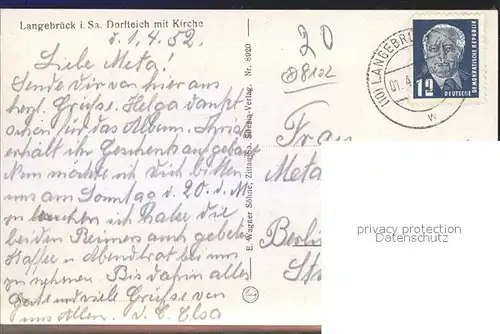 Langebrück i. Sa. Dorfteich mit Kirche
d. 1. 4. 52.
Liebe Meta!
Sende Dir von hier aus
herzl. Grüsse. Helga dankt
schön für das Album.
erhält ihr Geschenk
möchte ich Dich bitten
uns am Sonntag d. 20. d. M
zu besuchen ich habe die
beiden Reimers auch gebeten
Kaffee u Abendbrot bei uns
zu nehmen. Bis dahin alles
Gute und viele Grüsse von
uns Allen. Elsa
E. Wagner Söhne, Zittau Sa. Verlag. Nr. 8920
20
8122
LANGEBRÜ
01. 4
W
12
DEUTSCHE
DEMOKRATISCHE REPUBLIK
Frau
Meta
Berlin
Str
privacy protection
Datenschutz